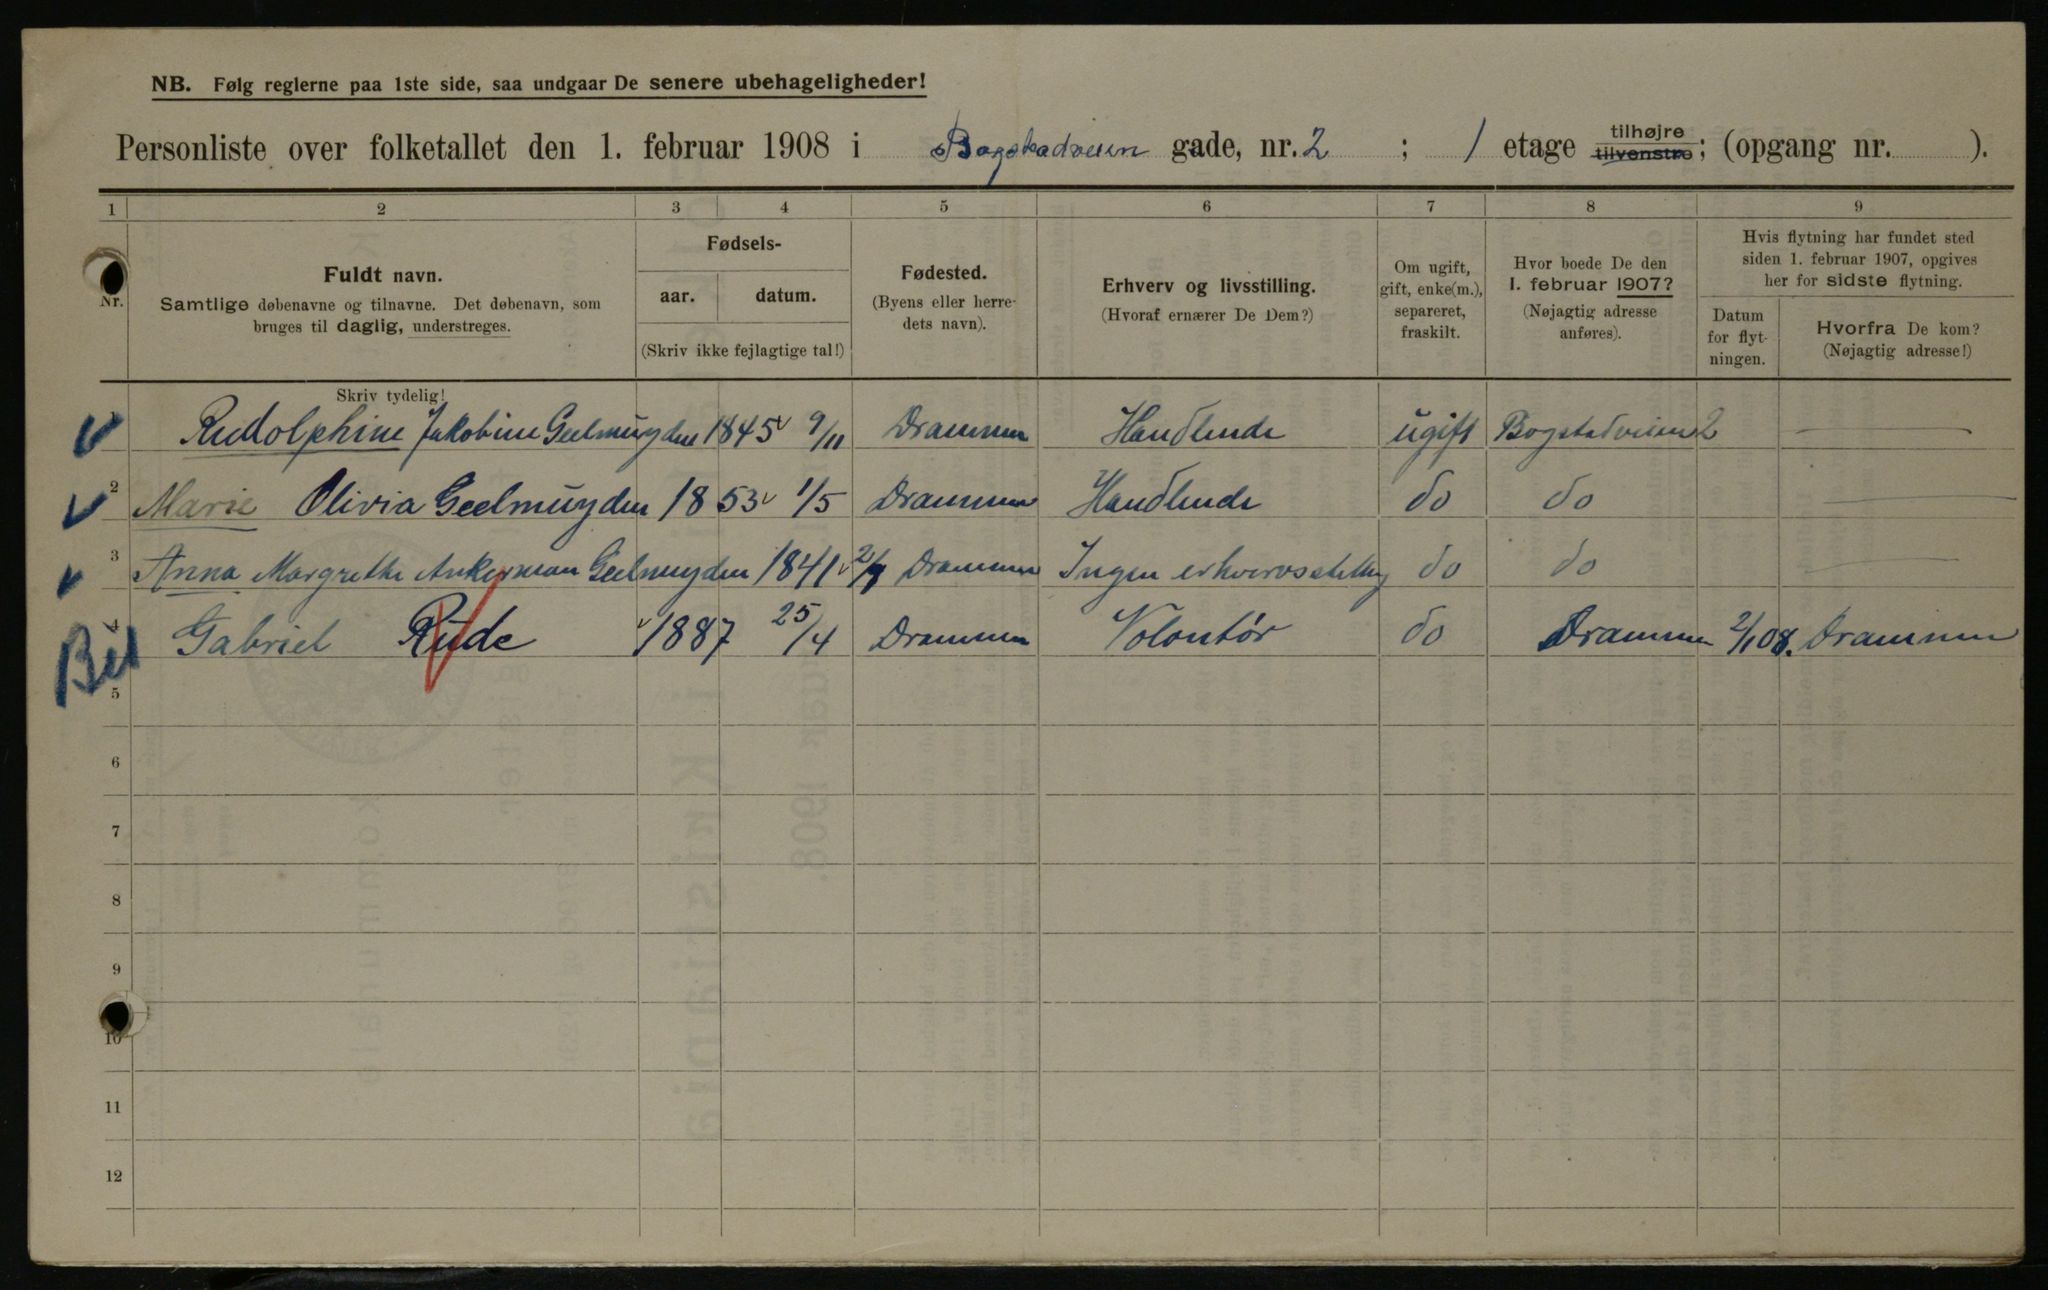 NB. Følg reglerne paa 1ste side, saa undgaar De senere ubehageligheder!
Personliste over folketallet den 1. februar 1908 i Bogstadveien gade, nr. 2 ; 1 etage tilhøjre tilvenstre; (opgang nr. ).
1 2 3 4 5 6 7 8 9
Nr.
Fuldt navn.
Samtlige døbenavne og tilnavne. Det døbenavn, som
bruges til daglig, understreges.
Skriv tydelig!
Fødsels-
aar. datum.
(Skriv ikke fejlagtige tal!)
Fødested.
(Byens eller herre-
dets navn).
Erhverv og livsstilling.
(Hvoraf ernærer De Dem?)
Om ugift,
gift, enke(m.),
separeret,
fraskilt.
Hvor boede De den
1. februar 1907?
(Nøjagtig adresse
anføres).
Hvis flytning har fundet sted
siden 1. februar 1907, opgives
her for sidste flytning.
Datum
for flyt-
ningen.
Hvorfra De kom?
(Nøjagtig adresse!)
Rudolphine Jakobine Geelmuyden 1845 9/11 Drammen Handlende ugift Bogstadveien 2 —
2 Marie Olivia Geelmuyden 1853 1/5 Drammen Handlende do do —
3 Anna Margrethe Ankerman Geelmuyden 1841 Drammen Ingen erhvervsstilling do do —
4 Gabriel Rude 1887 25/4 Drammen Volontør do Drammen 2/1 08. Drammen
5
6
7
8
9
10
11
12